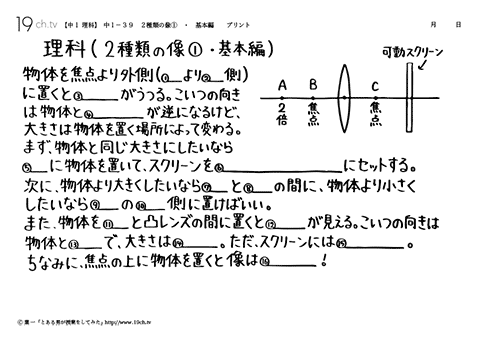 19ch.tv 【中1 理科】 中1-39 2種類の像① ・ 基本編 プリント 月 日
理科(2種類の像①・基本編)
可動スクリーン
A B C
2倍 焦点 焦点
物体を焦点より外側(①__より②__側)
に置くと③______がうつる。こいつの向き
は物体と④________が逆になるけど、
大きさは物体を置く場所によって変わる。
まず、物体と同じ大きさにしたいなら
⑤__に物体を置いて、スクリーンを⑥________________にセットする。
次に、物体より大きくしたいなら⑦__と⑧__の間に、物体より小さく
したいなら⑨__の⑩__側に置けばいい。
また、物体を⑪__と凸レンズの間に置くと⑫____が見える。こいつの向きは
物体と⑬____で、大きさは⑭____。ただ、スクリーンには⑮________。
ちなみに、焦点の上に物体を置くと像は⑯______!
©葉一「とある男が授業をしてみた」http://www.19ch.tv